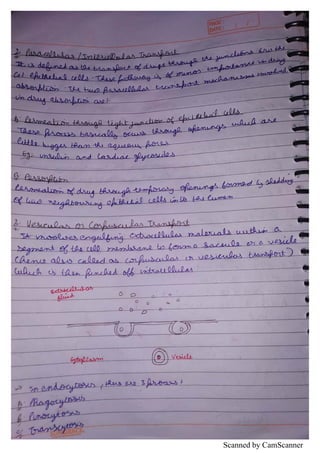 PAGE: / /
DATE:
2) Paracellular / Intercellular Transport
It is defined as the transport of drugs through the junctions b/w the
GI epithelial cells. These pathway is of minor importance in drug
absorption. The two paracellular transport mechanisms involved
in drug absorption are:
Permeation through tight junction of epithelial cells.
These process basically occurs through openings which are
little bigger than the aqueous pores
Eg. insulin and Cardiac glycosides
Persorption
Permeation of drug through temporary openings formed by shedding
of two neighbouring epithelial cells into the lumen
3) Vesicular or Corpuscular Transport
It involves engulfing extracellular materials within a
segment of the cell membrane to form a saccule or a vesicle
(hence also called as corpuscular or vesicular transport)
which is then pinched off intracellular.
extracellular
fluid
Cytoplasm
Vesicle
→ In endocytosis, thus are 3 process:
Phagocytosis
Pinocytosis
Transcytosis
Scanned by CamScanner